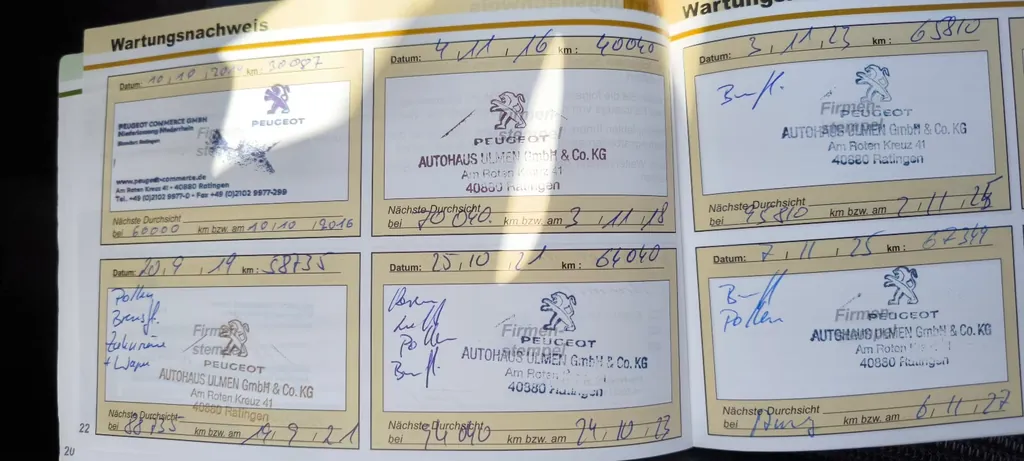 Wartungsnachweis
Datum: 10, 10, 2014 km: 30087
PEUGEOT COMMERCE GMBH
Niederlassung Niederrhein
Standort Ratingen
Firmen-
stempel
PEUGEOT
www.peugeot-commerce.de
Am Roten Kreuz 41 - 40880 Ratingen
Tel. +49 (0)2102 9977-0 - Fax +49 (0)2102 9977-299
Nächste Durchsicht
bei 60000 km bzw. am 10, 10, 2016
Datum: 4, 11, 16 km: 40040
Firmen-
stempel
PEUGEOT
AUTOHAUS ULMEN GmbH & Co. KG
Am Roten Kreuz 41
40880 Ratingen
Nächste Durchsicht
bei 70040 km bzw. am 3, 11, 18
Datum: 20, 9, 19 km: 58735
Pollen
Bremsfl.
Firmen-
stempel
PEUGEOT
AUTOHAUS ULMEN GmbH & Co. KG
Am Roten Kreuz 41
40880 Ratingen
Nächste Durchsicht
bei 88735 km bzw. am 19, 9, 21
Datum: 25, 10, 21 km: 64040
Luft
Pollen
Bremsfl.
Firmen-
stempel
PEUGEOT
AUTOHAUS ULMEN GmbH & Co. KG
Am Roten Kreuz 41
40880 Ratingen
Nächste Durchsicht
bei 94040 km bzw. am 24, 10, 23
22
20
Datum: 3, 11, 23 km: 65810
Bremsfl.
Firmen-
stempel
PEUGEOT
AUTOHAUS ULMEN GmbH & Co. KG
Am Roten Kreuz 41
40880 Ratingen
Nächste Durchsicht
bei 95810 km bzw. am 2, 11, 25
Datum: 7, 11, 25 km: 67349
Bremsfl.
Pollen
Firmen-
stempel
PEUGEOT
AUTOHAUS ULMEN GmbH & Co. KG
Am Roten Kreuz 41
40880 Ratingen
Nächste Durchsicht
bei km bzw. am 6, 11, 27